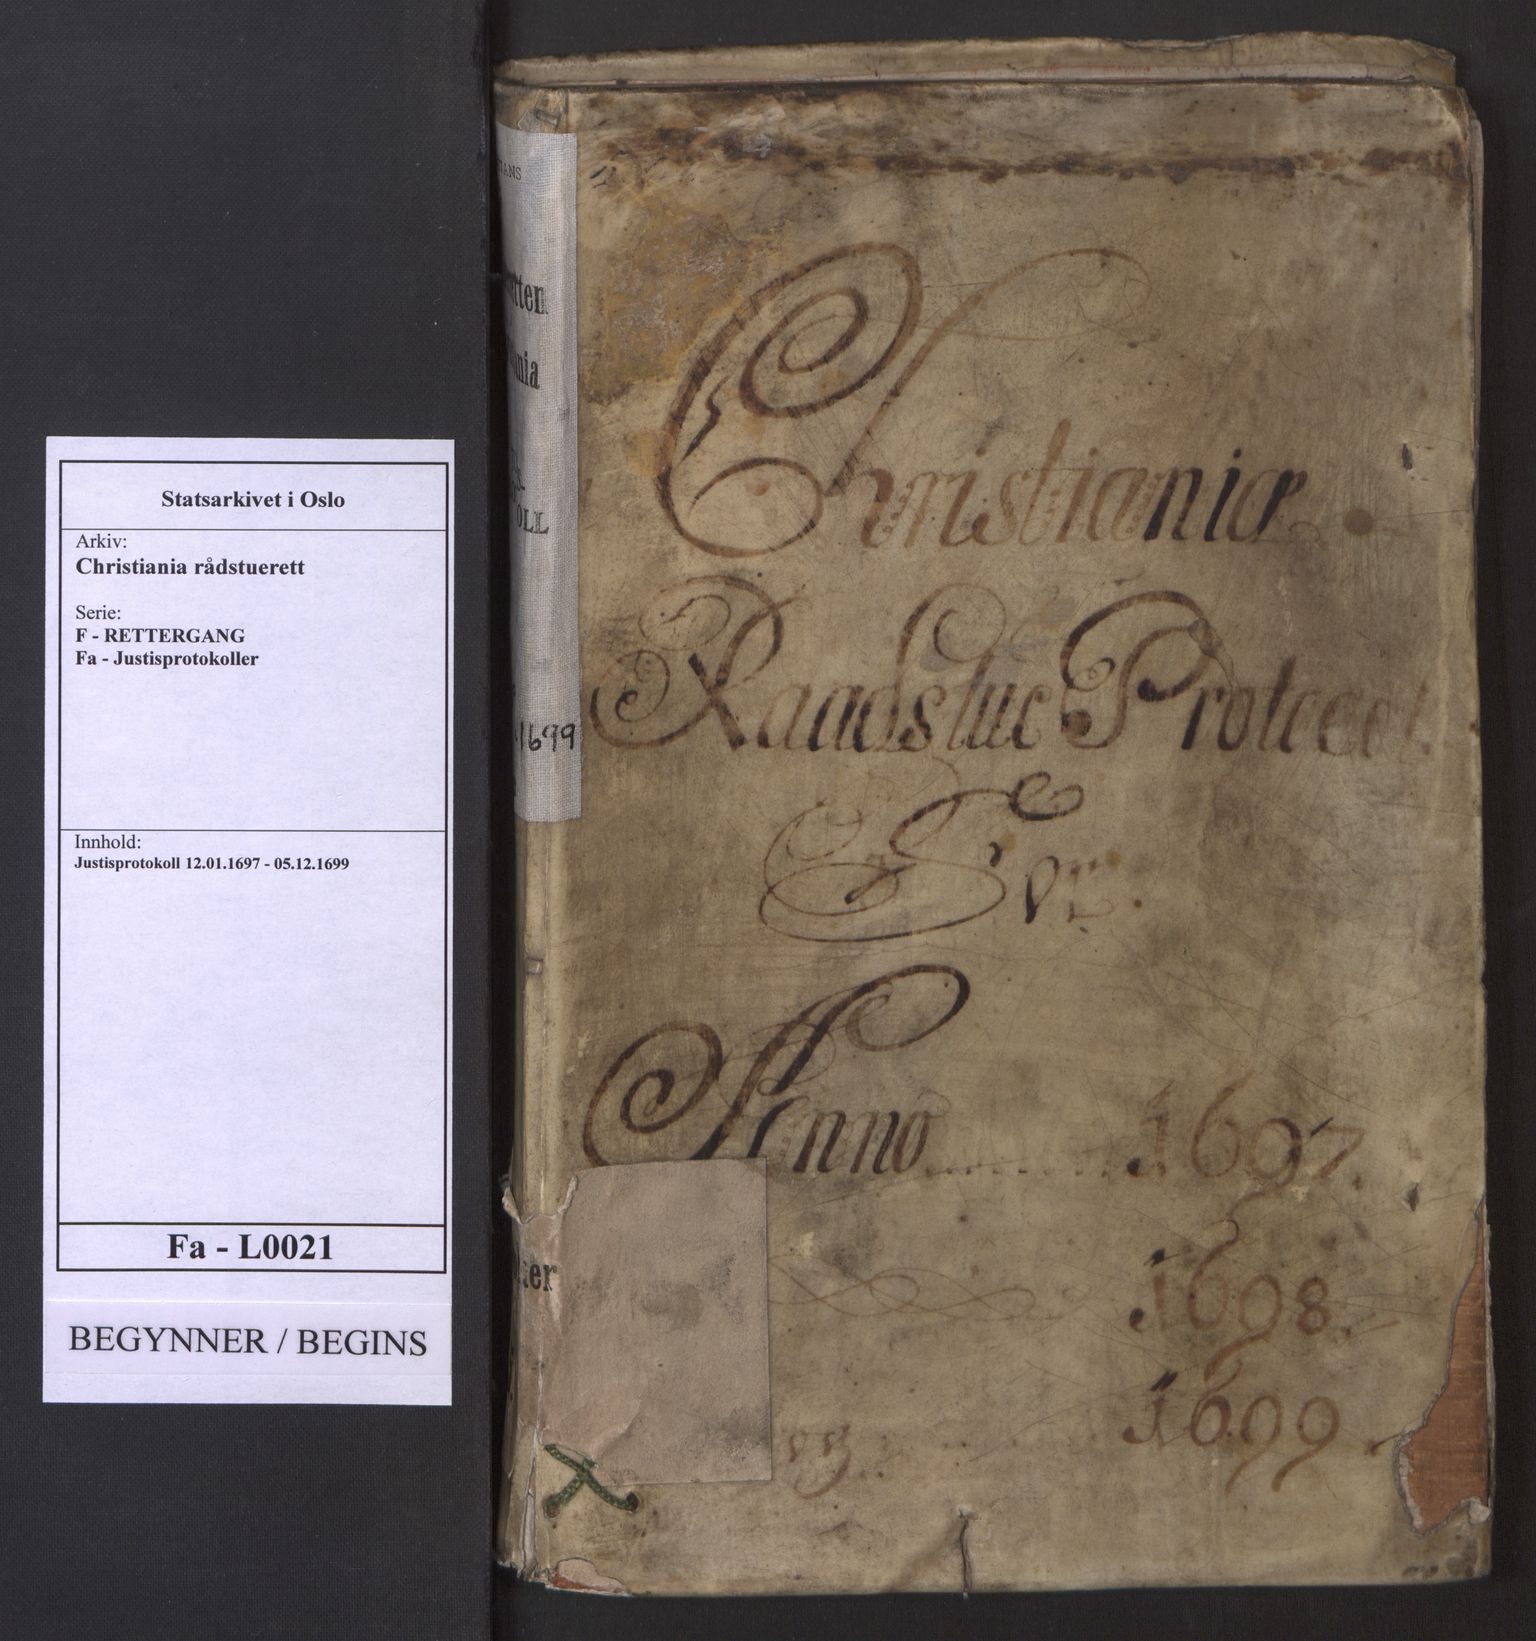 Statsarkivet i Oslo
Arkiv:
Christiania rådstuerett
Serie:
F - RETTERGANG
Fa - Justisprotokoller
Innhold:
Justisprotokoll 12.01.1697 - 05.12.1699
Fa - L0021
BEGYNNER / BEGINS
Christianiæ
Raadstue Protocol
For
Anno 1697.
1698.
og 1699
1699